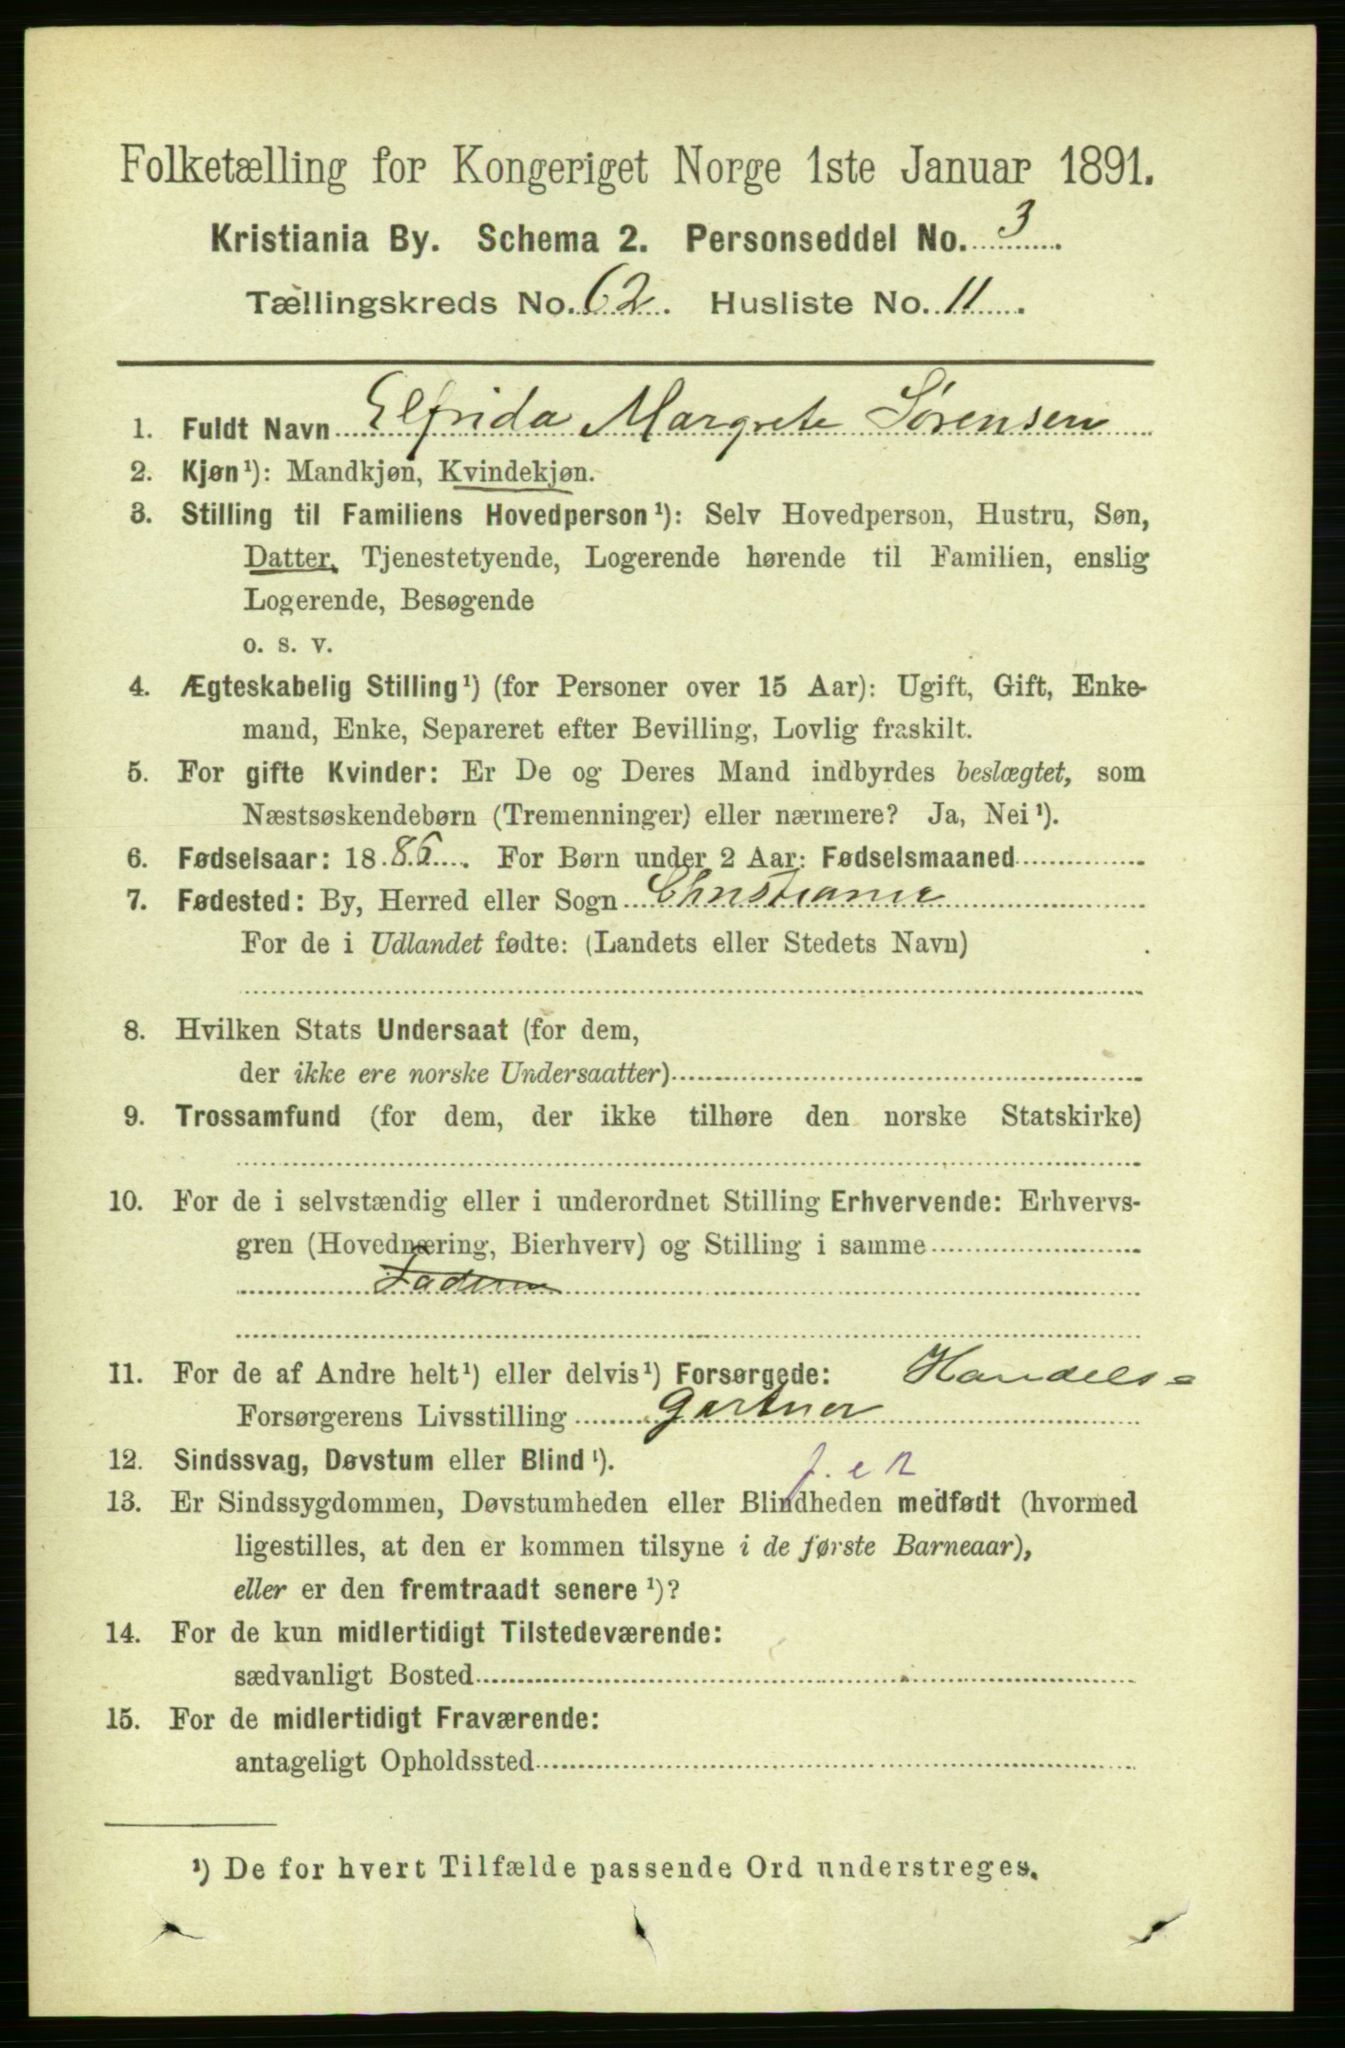 Folketælling for Kongeriget Norge 1ste Januar 1891.
Kristiania By. Schema 2. Personseddel No. 3.
Tællingskreds No. 62. Husliste No. 11.
1. Fuldt Navn Elfrida Margrete Sørensen
2. Kjøn¹): Mandkjøn, Kvindekjøn.
3. Stilling til Familiens Hovedperson¹): Selv Hovedperson, Hustru, Søn,
Datter, Tjenestetyende, Logerende hørende til Familien, enslig
Logerende, Besøgende
o. s. v.
4. Ægteskabelig Stilling¹) (for Personer over 15 Aar): Ugift, Gift, Enke-
mand, Enke, Separeret efter Bevilling, Lovlig fraskilt.
5. For gifte Kvinder: Er De og Deres Mand indbyrdes beslægtet, som
Næstsøskendebørn (Tremenninger) eller nærmere? Ja, Nei¹).
6. Fødselsaar: 1886. For Børn under 2 Aar: Fødselsmaaned
7. Fødested: By, Herred eller Sogn Christiania
For de i Udlandet fødte: (Landets eller Stedets Navn)
8. Hvilken Stats Undersaat (for dem,
der ikke ere norske Undersaatter)
9. Trossamfund (for dem, der ikke tilhøre den norske Statskirke)
10. For de i selvstændig eller i underordnet Stilling Erhvervende: Erhvervs-
gren (Hovednæring, Bierhverv) og Stilling i samme
11. For de af Andre helt¹) eller delvis¹) Forsørgede: Handels=
Forsørgerens Livsstilling Gartner
12. Sindssvag, Døvstum eller Blind¹).
13. Er Sindssygdommen, Døvstumheden eller Blindheden medfødt (hvormed
ligestilles, at den er kommen tilsyne i de første Barneaar),
eller er den fremtraadt senere¹)?
14. For de kun midlertidigt Tilstedeværende:
sædvanligt Bosted
15. For de midlertidigt Fraværende:
antageligt Opholdssted
¹) De for hvert Tilfælde passende Ord understreges.